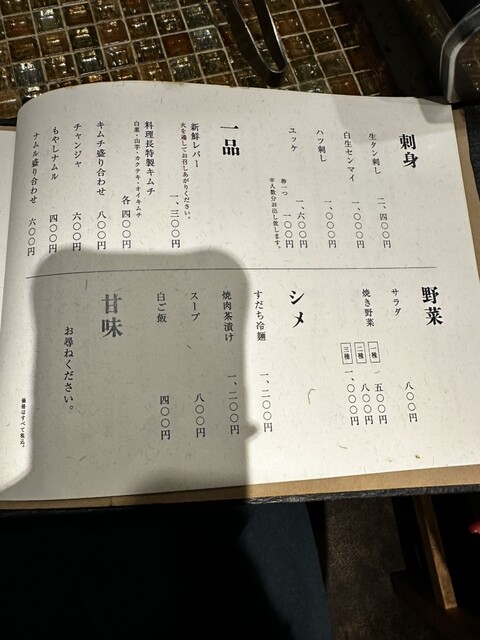 刺身
生タン刺し 二、四〇〇円
白生センマイ 一、〇〇〇円
ハツ刺し 一、〇〇〇円
ユッケ 一、六〇〇円
卵一つ 一〇〇円
※人数分お出し致します。
一品
新鮮レバー 一、三〇〇円
火を通してお召しあがりください。
料理長特製キムチ 各 四〇〇円
白菜・山芋・カクテキ・オイキムチ
キムチ盛り合わせ 八〇〇円
チャンジャ 六〇〇円
もやしナムル 四〇〇円
ナムル盛り合わせ 六〇〇円
野菜
サラダ 八〇〇円
焼き野菜 一種 五〇〇円
二種 八〇〇円
三種 一、〇〇〇円
シメ
すだち冷麺 一、二〇〇円
焼肉茶漬け 一、二〇〇円
スープ 八〇〇円
白ご飯 四〇〇円
甘味
お尋ねください。
価格はすべて税込。